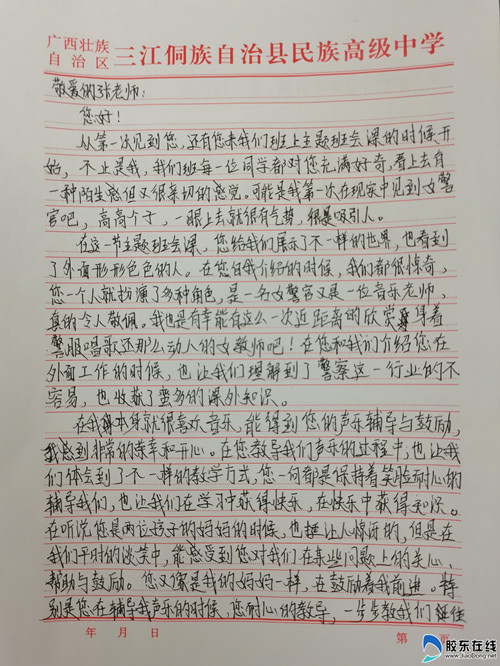 广西壮族
自治区 三江侗族自治县民族高级中学
敬爱的张老师:
您好!
从第一次见到您,还有您来我们班上主题班会课的时候开
始,不止是我,我们班每一位同学都对您充满好奇,看上去有
一种陌生感但又很亲切的感觉。可能是我第一次在现实中见到女警
官吧,高高个子,一眼上去就很有气势,很是吸引人。
在这一节主题班会课,您给我们展示了不一样的世界,也看到
了外面形形色色的人。在您自我介绍的时候,我们都很惊奇,
您一个人就扮演了多种角色,是一名女警官又是一位音乐老师,
真的令人敬佩。我也是有幸能有这么一次近距离的欣赏身着
警服唱歌还那么动人的女教师吧!在您和我们介绍您在
外面工作的时候,也让我们理解到了警察这一行业的不
容易,也收获了蛮多的课外知识。
在我本身就很喜欢音乐,能得到您的声乐辅导与鼓励,
我感到非常的荣幸和开心。在您教导我们声乐的过程中,也让我
们体会到了不一样的教学方式,您一向都是保持着笑脸耐心的
辅导我们,也让我们在学习中获得快乐,在快乐中获得知识。
在听说您是两位孩子的妈妈的时候,也挺让人惊讶的,但是在
我们平时的谈笑中,能感受到您对我们在某些问题上的关心、
帮助与鼓励。您又像是我的妈妈一样,在鼓励着我前进。特
别是您在辅导我声乐的时候,您耐心的教导,一步步教我们
年 月 日 第 页
胶东在线
www.JiaoDong.net